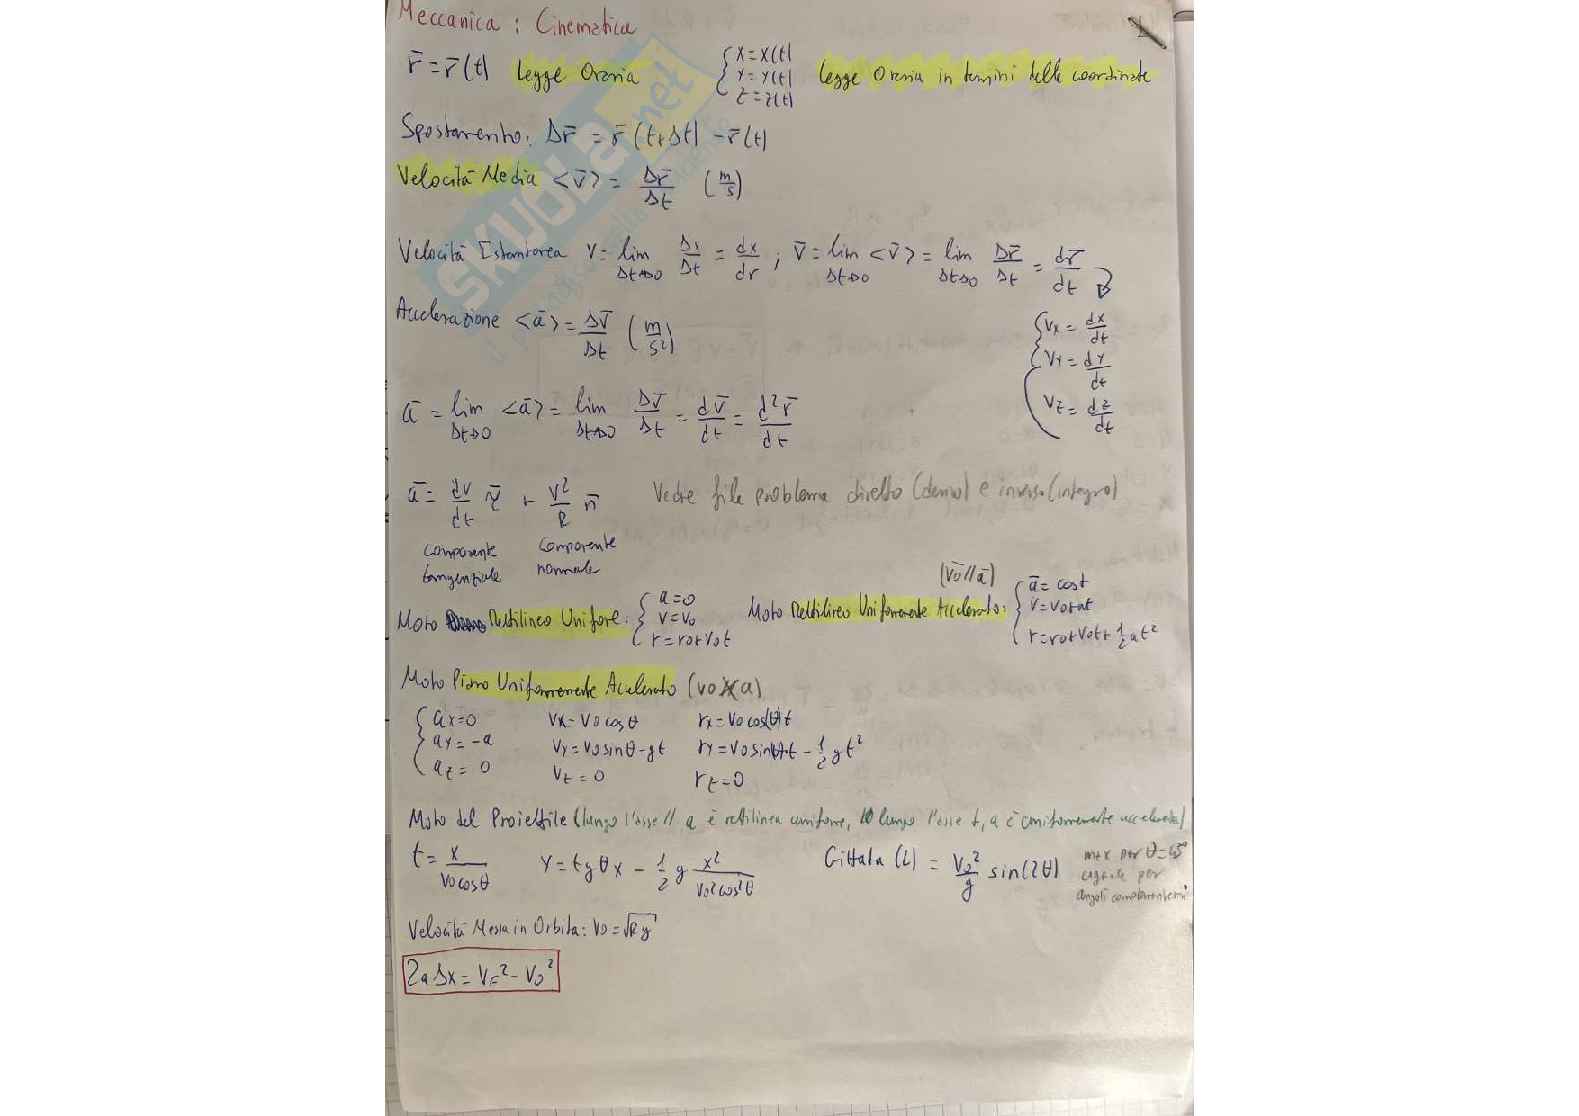 Meccanica : Cinematica
r̄ = r̄(t) Legge Oraria { x = x(t) y = y(t) z = z(t) Legge Oraria in termini delle coordinate
Spostamento: Δr̄ = r̄(t+Δt) - r̄(t)
Velocità Media <v̄> = Δr̄/Δt (m/s)
Velocità Istantanea v = lim Δt→0 Δx/Δt = dx/dr ; v̄ = lim Δt→0 <v̄> = lim Δt→0 Δr̄/Δt = dr̄/dt
{ vx = dx/dt
vy = dy/dt
vz = dz/dt
Accelerazione <ā> = Δv̄/Δt (m/s²)
ā = lim Δt→0 <ā> = lim Δt→0 Δv̄/Δt = dv̄/dt = d²r̄/dt
ā = dv/dt τ̄ + v²/R n̄ Vedere file problema diretto (derivo) e inverso (integro)
componente tangenziale componente normale
(v̄0//ā)
Moto Rettilineo Uniforme: { a = 0 v = v0 r = r0+v0t Moto Rettilineo Uniformemente Accelerato: { ā = cost v = v0+at r = r0+v0t+ 1/2 at²
Moto Piano Uniformemente Accelerato (v0 ∦ a)
{ ax = 0 vx = v0 cosθ rx = v0 cos(θ)t
ay = -a vy = v0 sinθ - gt ry = v0 sinθ·t - 1/2 gt²
az = 0 vz = 0 rz = 0
Moto del Proiettile (lungo l'asse // a è rettilineo uniforme, lungo l'asse ⊥, a è uniformemente accelerato)
t = x/v0cosθ y = tgθx - 1/2 g x²/v0²cos²θ Gittata (L) = v0²/g sin(2θ) max per θ=45° uguale per angoli complementari
Velocità Messa in Orbita: v0 = √Rg
2aΔx = vF² - v0²
SKUOLA.net